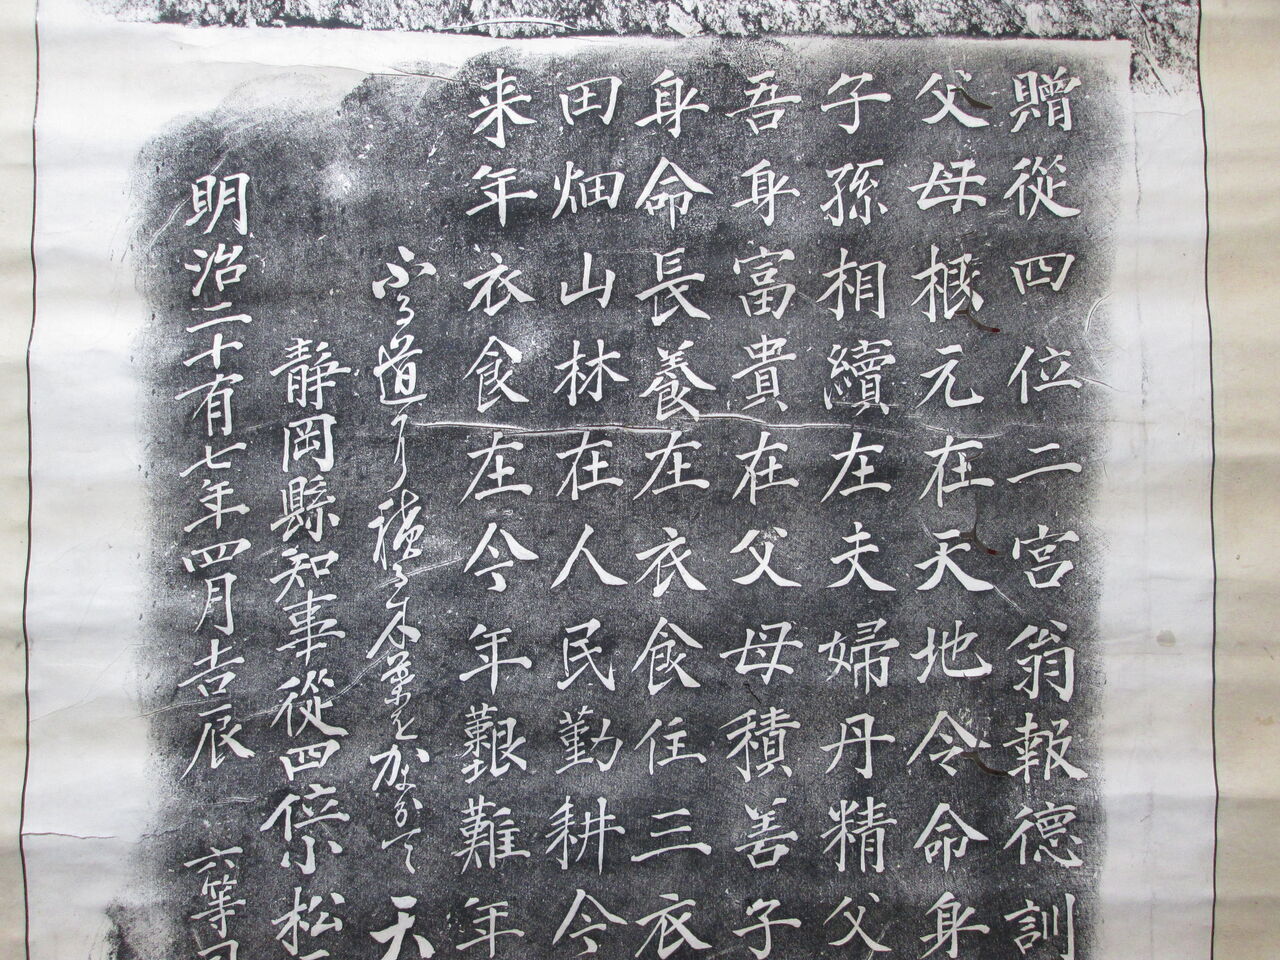 贈從四位二宮翁報德訓
父母根元在天地令命身
子孫相續在夫婦丹精父
吾身富貴在父母積善子
身命長養在衣食住三衣
田畑山林在人民勤耕今
来年衣食在今年艱難年
天
静岡縣知事從四位小松
明治二十有七年四月吉辰 六等